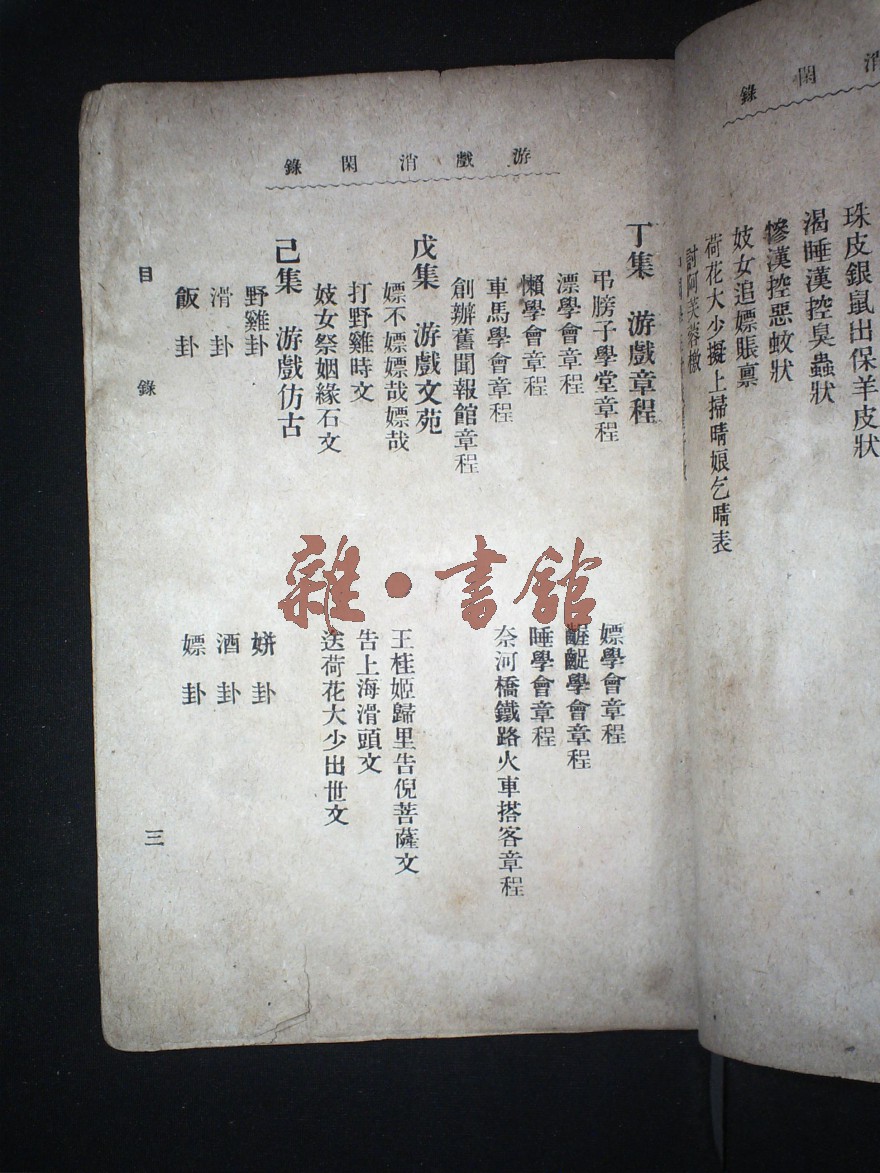 消閑錄
珠皮銀鼠出保羊皮狀
渴睡漢控臭蟲狀
慘漢控惡蚊狀
妓女追嫖賬禀
荷花大少擬上掃晴娘乞晴表
討阿芙蓉檄
游戲消閑錄
丁集 游戲章程
弔膀子學堂章程
嫖學會章程
漂學會章程
齷齪學會章程
懶學會章程
睡學會章程
車馬學會章程
奈河橋鐵路火車搭客章程
創辦舊聞報館章程
戊集 游戲文苑
嫖不嫖嫖哉嫖哉
王桂姬歸里告倪菩薩文
打野雞時文
告上海滑頭文
妓女祭姻緣石文
送荷花大少出世文
己集 游戲仿古
野雞卦
姘卦
滑卦
酒卦
飯卦
嫖卦
目錄
三
雜·書館